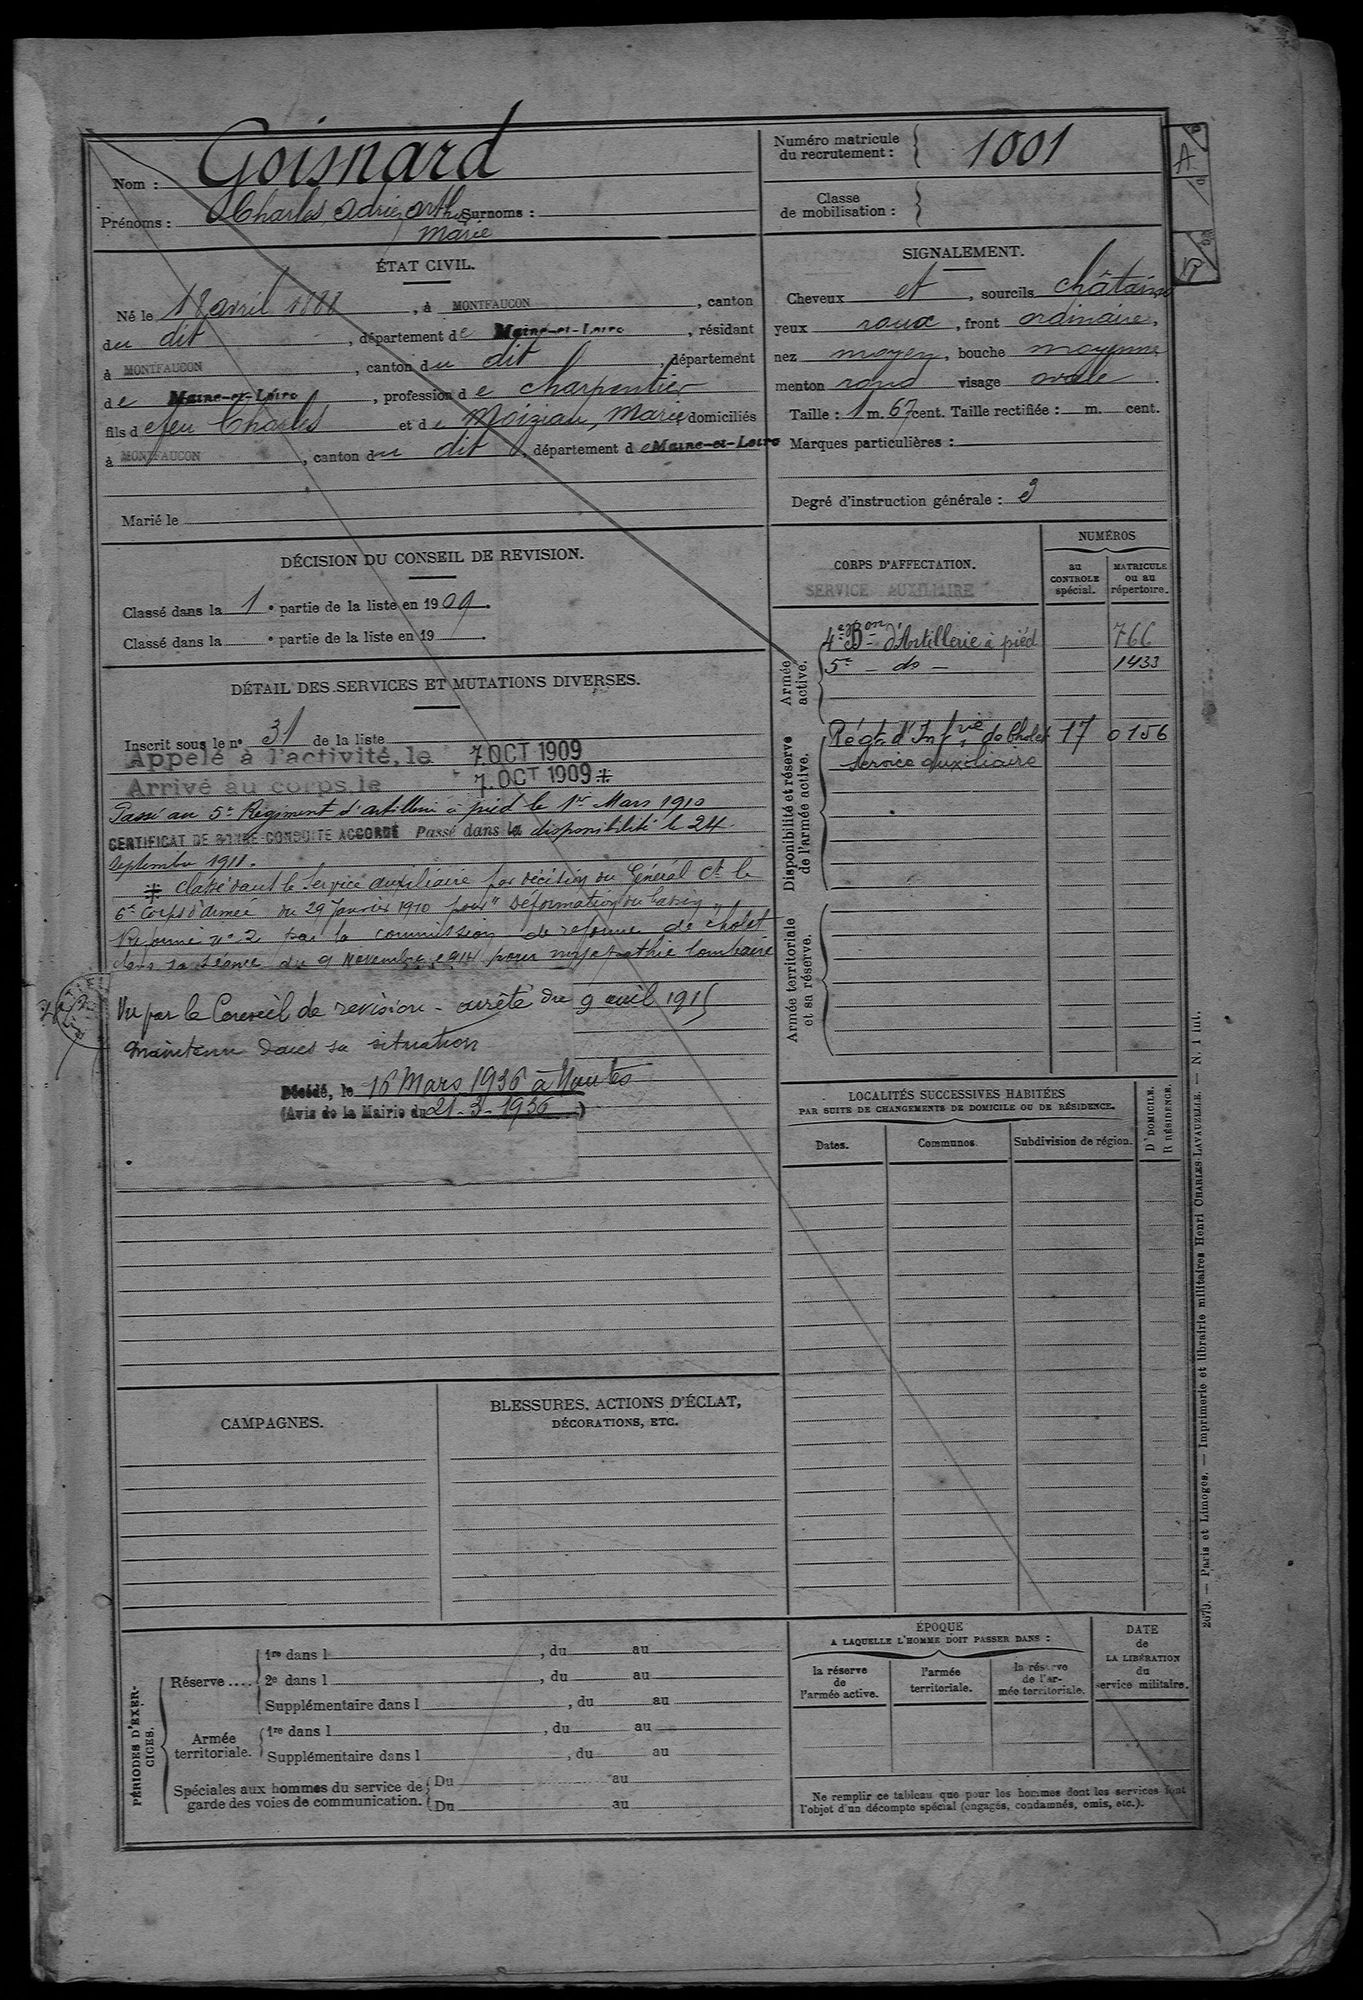 Goisnard
Nom :
Prénoms : Charles, Adrien, Arth. Surnoms :
Marie
Numéro matricule du recrutement : 1001
Classe de mobilisation :
ÉTAT CIVIL.
Né le 18 avril 1888, à MONTFAUCON, canton
du dit, département de Maine-et-Loire, résidant
à MONTFAUCON, canton du dit, département
de Maine-et-Loire, profession de charpentier
fils de feu Charles et de Moizeau, Marie, domiciliés
à MONTFAUCON, canton du dit, département de Maine-et-Loire
Marié le
SIGNALEMENT.
Cheveux et, sourcils châtains
yeux roux, front ordinaire,
nez moyen, bouche moyenne
menton rond visage ovale.
Taille : 1 m. 67 cent. Taille rectifiée : m. cent.
Marques particulières :
Degré d'instruction générale : 3
DÉCISION DU CONSEIL DE REVISION.
Classé dans la 1e partie de la liste en 1909.
Classé dans la e partie de la liste en 19 .
DÉTAIL DES SERVICES ET MUTATIONS DIVERSES.
Inscrit sous le no 31 de la liste
Appelé à l'activité, le 7 OCT 1909
Arrivé au corps, le 7. OCT 1909 *
Passé au 5e Régiment d'artillerie à pied le 1er Mars 1910
CERTIFICAT DE BONNE CONDUITE ACCORDÉ Passé dans la disponibilité le 24
septembre 1911.
* Classé dans le service auxiliaire par décision du Général Ct le
6e Corps d'Armée du 29 Janvier 1910 pour "Déformation du bassin"
Réformé no 2 par la commission de réforme de Cholet
dans sa séance du 9 Novembre 1914 pour lombaire
Vu par le Conseil de revision - arrêté du 9 avril 1915
Maintenu dans sa situation
Décédé, le 16 Mars 1936 à Nantes
(Avis de la Mairie du 21-3-1936)
CORPS D'AFFECTATION.
SERVICE AUXILIAIRE
NUMÉROS
au CONTROLE spécial.
MATRICULE ou au répertoire.
Armée active.
4e Bon d'Artillerie à pied 766
5e - do - 1433
Disponibilité et réserve de l'armée active.
Régt d'Infrie de Cholet 17 0156
Service auxiliaire
Armée territoriale et sa réserve.
LOCALITÉS SUCCESSIVES HABITÉES
PAR SUITE DE CHANGEMENTS DE DOMICILE OU DE RÉSIDENCE.
Dates.
Communes.
Subdivision de région.
D' DOMICILE.
R RÉSIDENCE.
CAMPAGNES.
BLESSURES, ACTIONS D'ÉCLAT,
DÉCORATIONS, ETC.
PÉRIODES D'EXERCICES.
Réserve ....
1re dans l , du au
2e dans l , du au
Supplémentaire dans l , du au
Armée territoriale.
1re dans l , du au
Supplémentaire dans l , du au
Spéciales aux hommes du service de garde des voies de communication.
Du au
Du au
ÉPOQUE
A LAQUELLE L'HOMME DOIT PASSER DANS :
la réserve de l'armée active.
l'armée territoriale.
la réserve de l'armée territoriale.
DATE de LA LIBÉRATION du service militaire.
Ne remplir ce tableau que pour les hommes dont les services font
l'objet d'un décompte spécial (engagés, condamnés, omis, etc.).
2679. — Paris et Limoges. — Imprimerie et librairie militaires Henri CHARLES-LAVAUZELLE. — N. 1 lut.